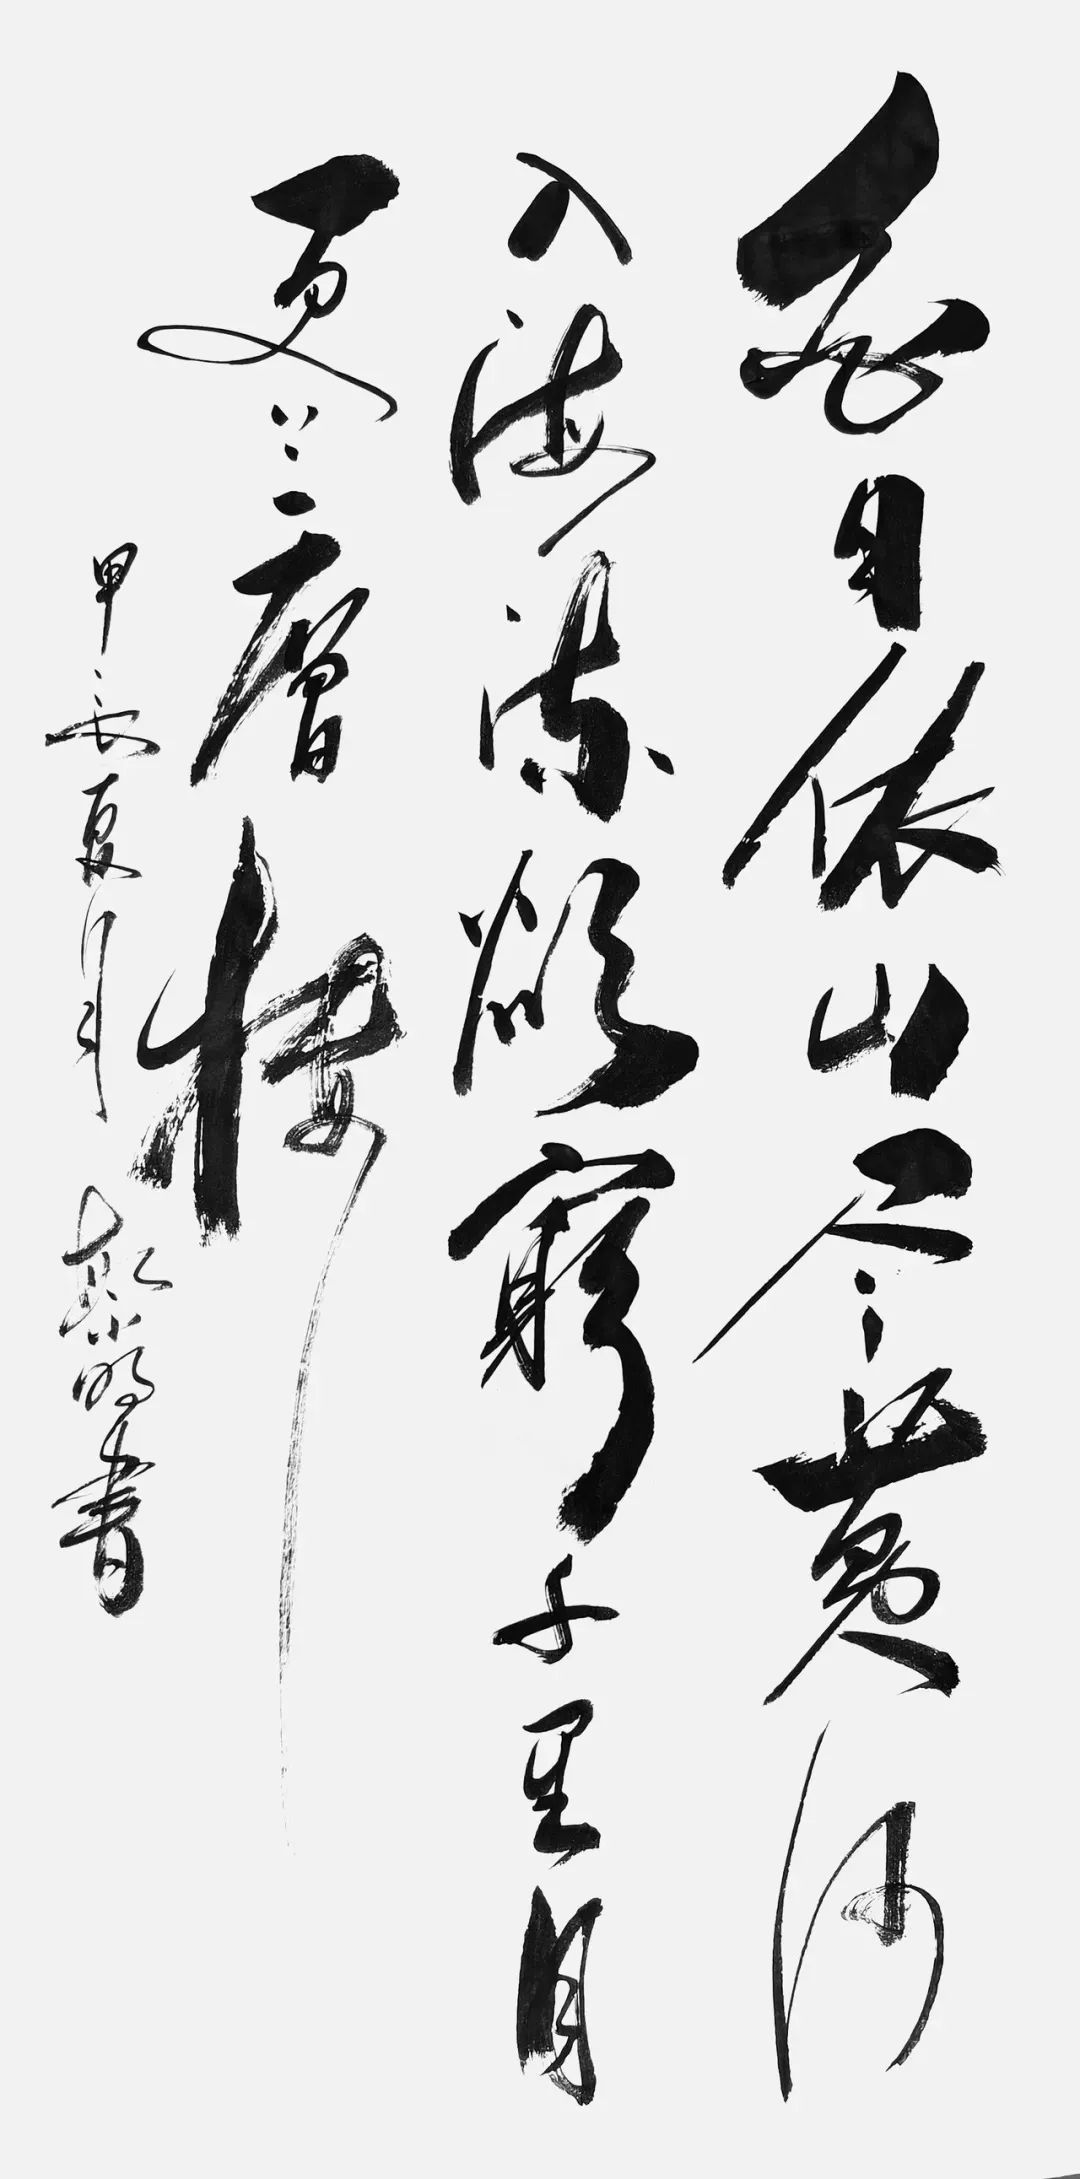 白日依山尽黄河
入海流欲窮千里目
更上一層樓
甲辰夏月 明書